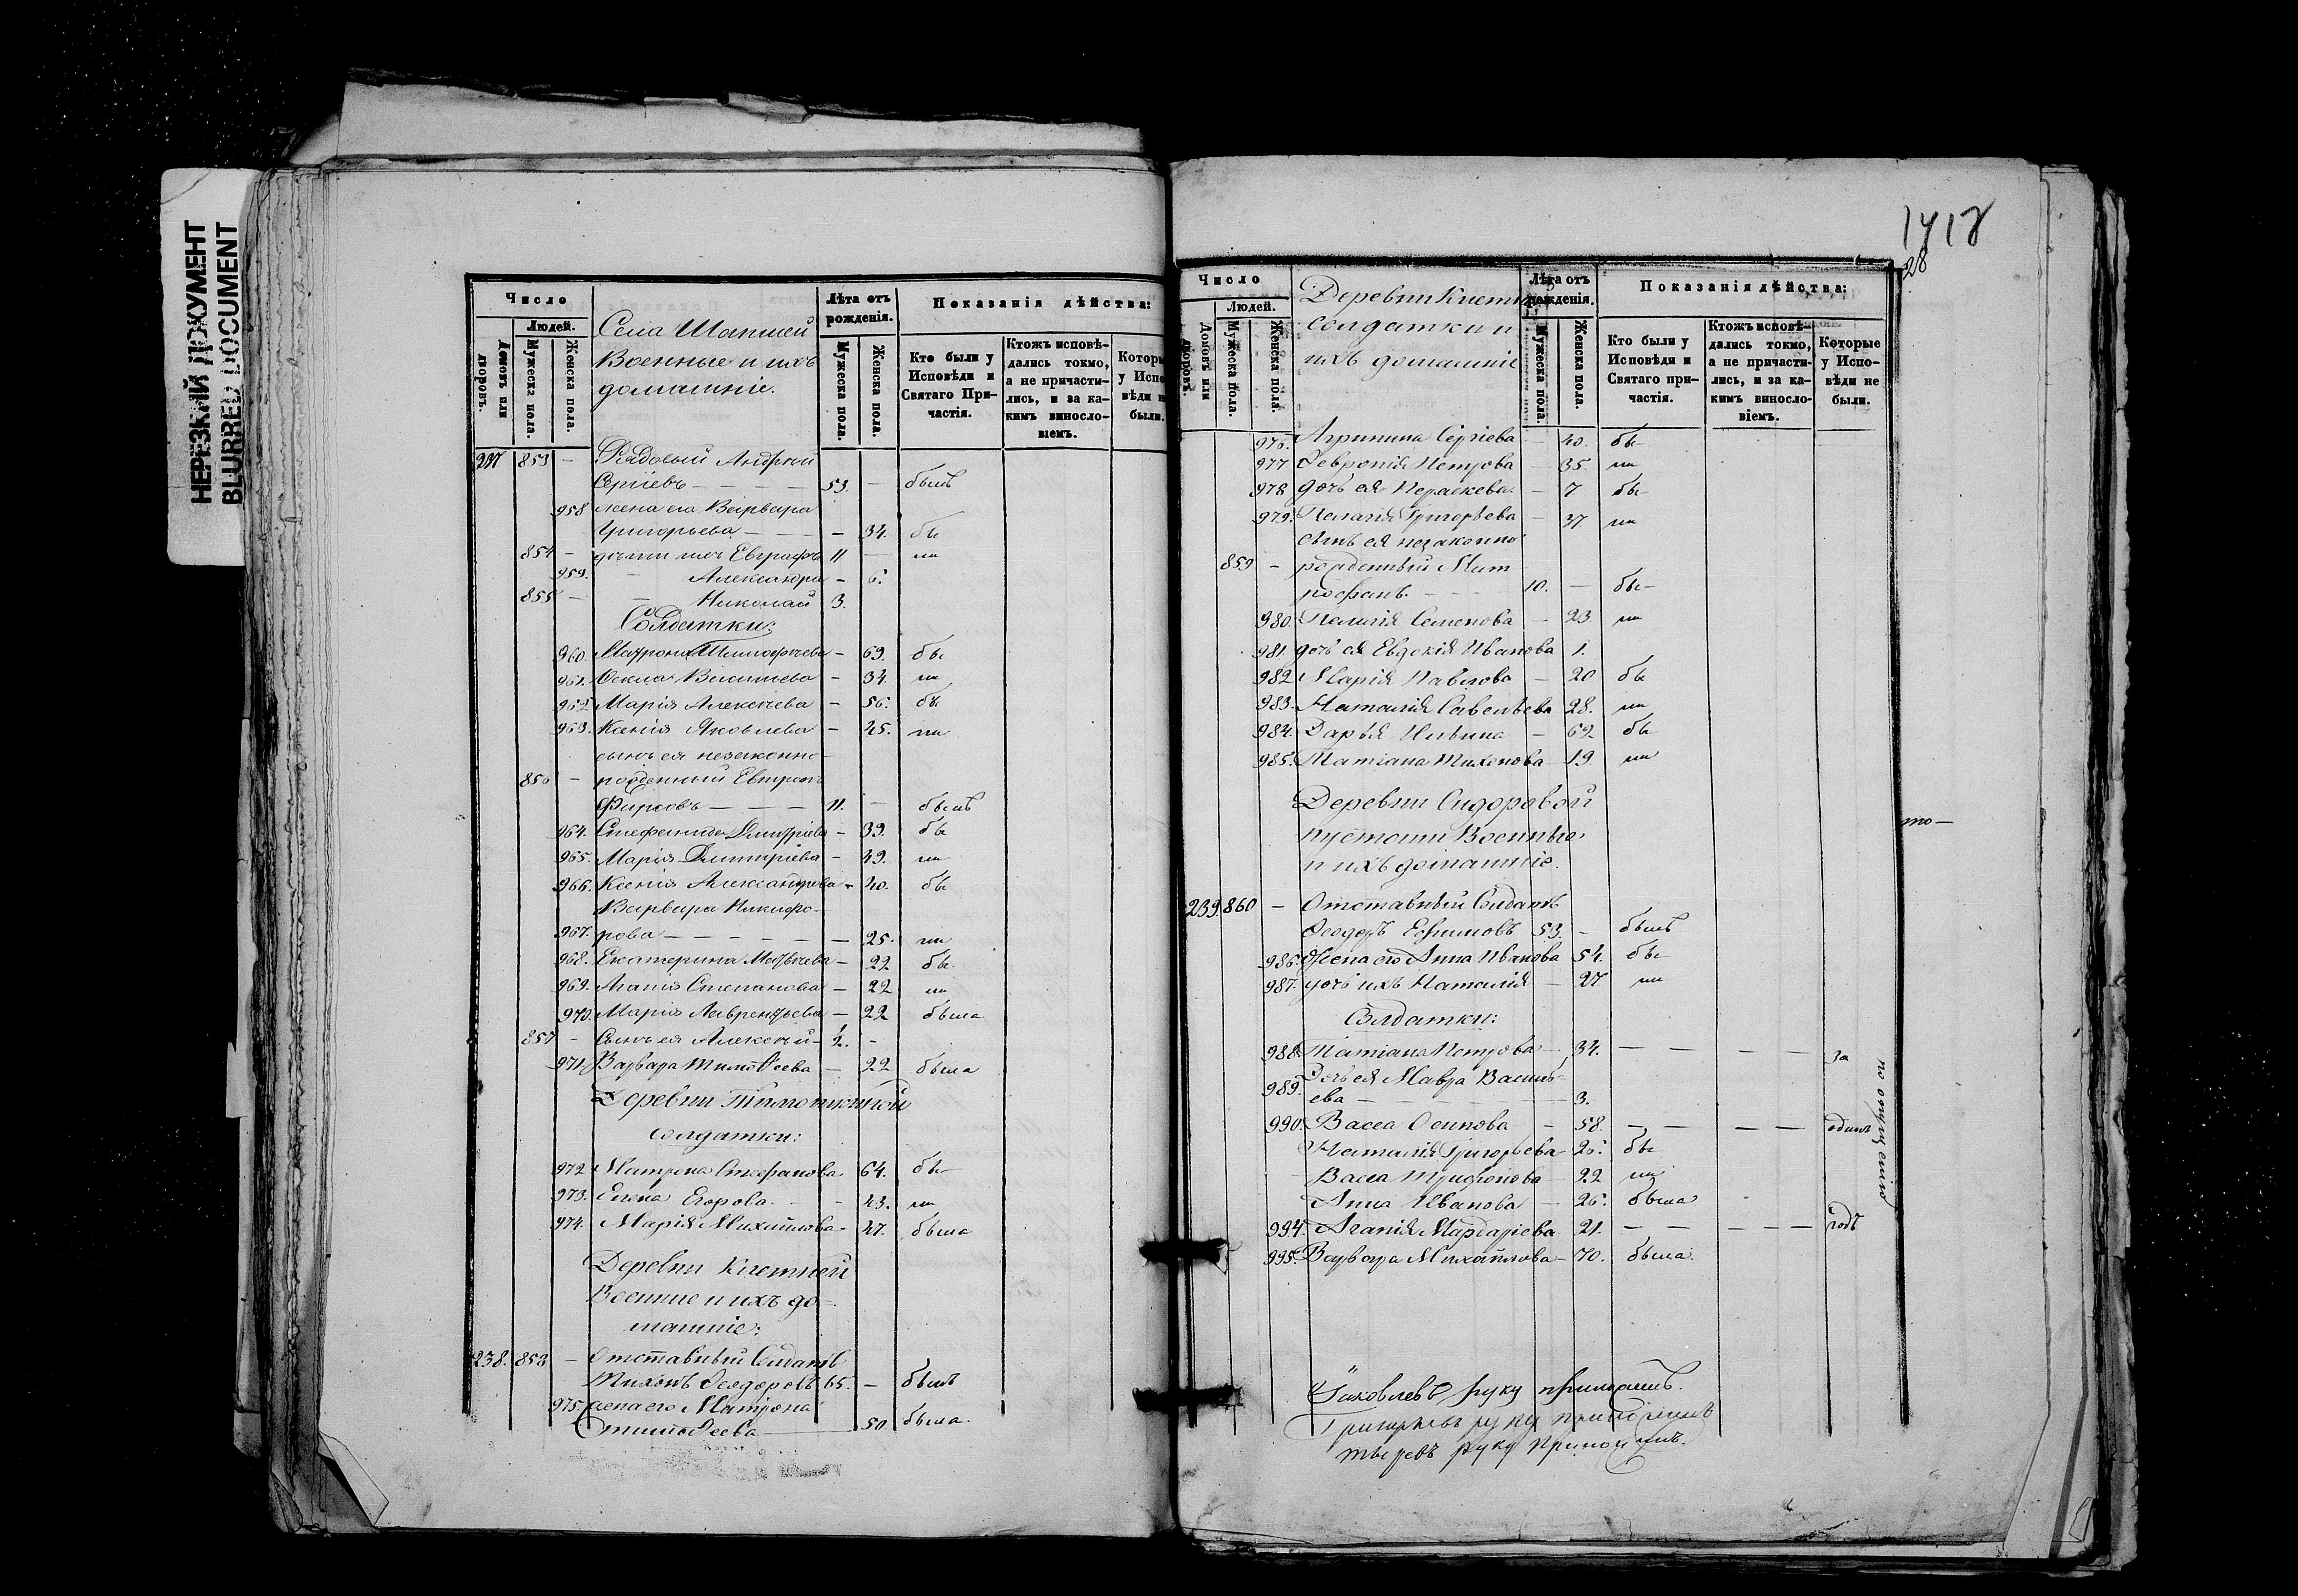 НЕРЕЗКИЙ ДОКУМЕНТ
BLURRED DOCUMENT
Число
Людей.
Домовъ или дворовъ.
Мужеска пола.
Женска пола.
Села Шапшей
Военные и ихъ
домашніе.
Лѣта отъ рожденія.
Мужеска пола.
Женска пола.
Показанія дѣйства:
Кто были у Исповѣди и Святаго Причастія.
Ктожъ исповѣдались токмо, а не причастились, и за какимъ винословіемъ.
Которы
у Испо
вѣди н
были.
237 853 – Рядовый Андрей
Сергіевъ – – – 53. – былъ
958 жена его Варвара
Григорьева – – – 34. бы
854 – дѣти ихъ Евграфъ 11 – ли
959. – Александра – 6.
855 – – Николай 3.
Солдатки:
960. Матрона Тимофеева – 69. бы
961. Фекла Васильева – 34. ли
962 Марія Алексѣева – 56. бы
963. Ксенія Яковлева – 45. ли
сынъ ея незаконно-
856 – рожденный Евтропъ
Фирсовъ – – – 11. – былъ
964. Стефанида Дмитріева – 39. бы
965. Марія Димитріева – 49. ли
966. Ксенія Александрова – 40. бы
Варвара Никифо-
967. рова – – – – – 25. ли
968. Екатерина Матвѣева – 22 бы
969. Агапія Степанова – 22 ли
970. Марія Лаврентьева – 22 была
857 – Сынъ ея Алексѣй – 1/2. –
971. Варвара Тимоѳеева – 22 была
Деревни
солдатки:
972 Матрона Стефанова 64. бы
973. Елена Егорова – – 43. ли
974. Марія Михайлова – 47. была
Деревни Клетней
Военные и ихъ до-
машніе:
238. 858 – Отставный Солдатъ
Тихонъ Ѳеодоровъ 65. – былъ
975. жена его Матрона
Тимоѳеева 50 была.
1418
28
Число
Людей.
Домовъ или дворовъ.
Мужеска пола.
Женска пола.
Деревни Клетней
солдатки и
ихъ домашніе
Лѣта отъ рожденія.
Мужеска пола.
Женска пола.
Показанія дѣйства:
Кто были у Исповѣди и Святаго причастія.
Ктожъ исповѣдались токмо, а не причастились, и за каким винословіемъ.
Которые у Исповѣди не были.
976. Агрипина Сергіева – 40. бы
977 Февронія Петрова – 35. ли
978 дочь ея Параскева – 7 бы
979. Пелагія Григорьева – 37 ли
сынъ ея незаконно
859 – рожденный Мит
рофанъ – – – 10. – бы
980. Пелагія Семенова – 23 ли
981. дочь ея Евдокія Иванова 1.
982 Марія Павлова – 20 бы
983. Наталія Савельева 28. ли
984. Дарья Ильина – 62 бы
985. Татіана Тихонова – 19. ли
Деревни Сидоровой
пустоши Военные
и ихъ домашніе.
то –
239. 860 – Отставный Солдатъ
Ѳеодоръ Ефимовъ 53. – былъ
986. Жена его Анна Иванова 54. бы
987. дочь ихъ Наталія – 27 ли
Солдатки:
988. Татіана Петрова – 34. – – – – за
989. Дочь ея Мавра Василь-
ева – – – 3.
990. Васса Осипова – 58. – – – – одинъ
Наталія Григорьева – 26. бы
Васса Трифонова – 22 ли
Анна Иванова – 26. была
994. Агапія Мардаріева 21. – – – – годъ
995. Варвара Михайлова – 70. была.
по опущенію
Яковлевъ руку приложилъ.
Григорьевъ руку приложилъ
руку приложилъ.